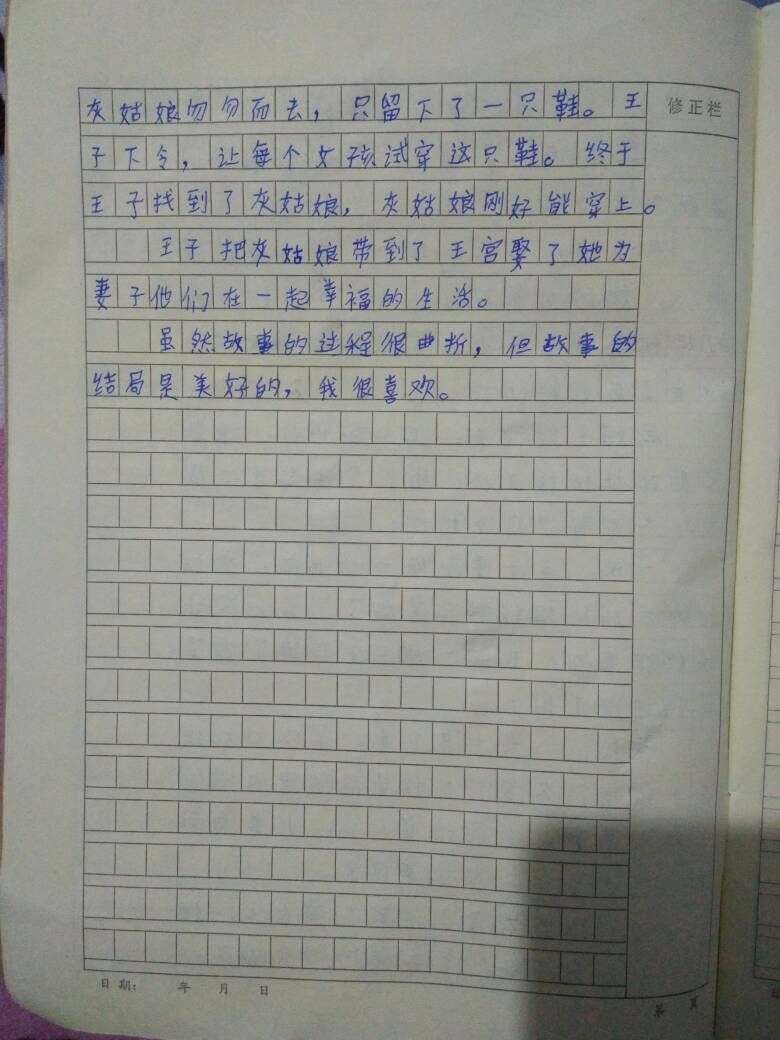 灰姑娘勿勿而去，只留下了一只鞋。王
修正栏
子下令，让每个女孩试穿这只鞋。终于
王子找到了灰姑娘，灰姑娘刚好能穿上。
王子把灰姑娘带到了王宫娶了她为
妻子他们在一起幸福的生活。
虽然故事的过程很曲折，但故事的
结局是美好的，我很喜欢。
日期： 年 月 日
第 页